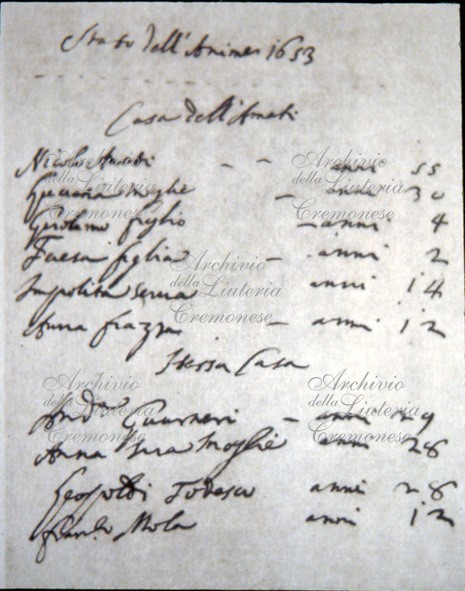 Stato dell'Anime 1653
Casa dell'Amati
Nicolò Amati - - anni 55
moglie - anni 30
Gerolamo figlio - anni 4
figlia - anni 2
Impolita serva anni 14
Anna - anni 12
Stessa Casa
And.a Guarneri - anni 29
Anna sua Moglie anni 28
Todesco anni 28
Mola anni 12
Archivio
della Liuteria
Cremonese
Archivio
della Liuteria
Cremonese
Archivio
della Liuteria
Cremonese
Archivio
della Liuteria
Cremonese
Archivio
della Liuteria
Cremonese